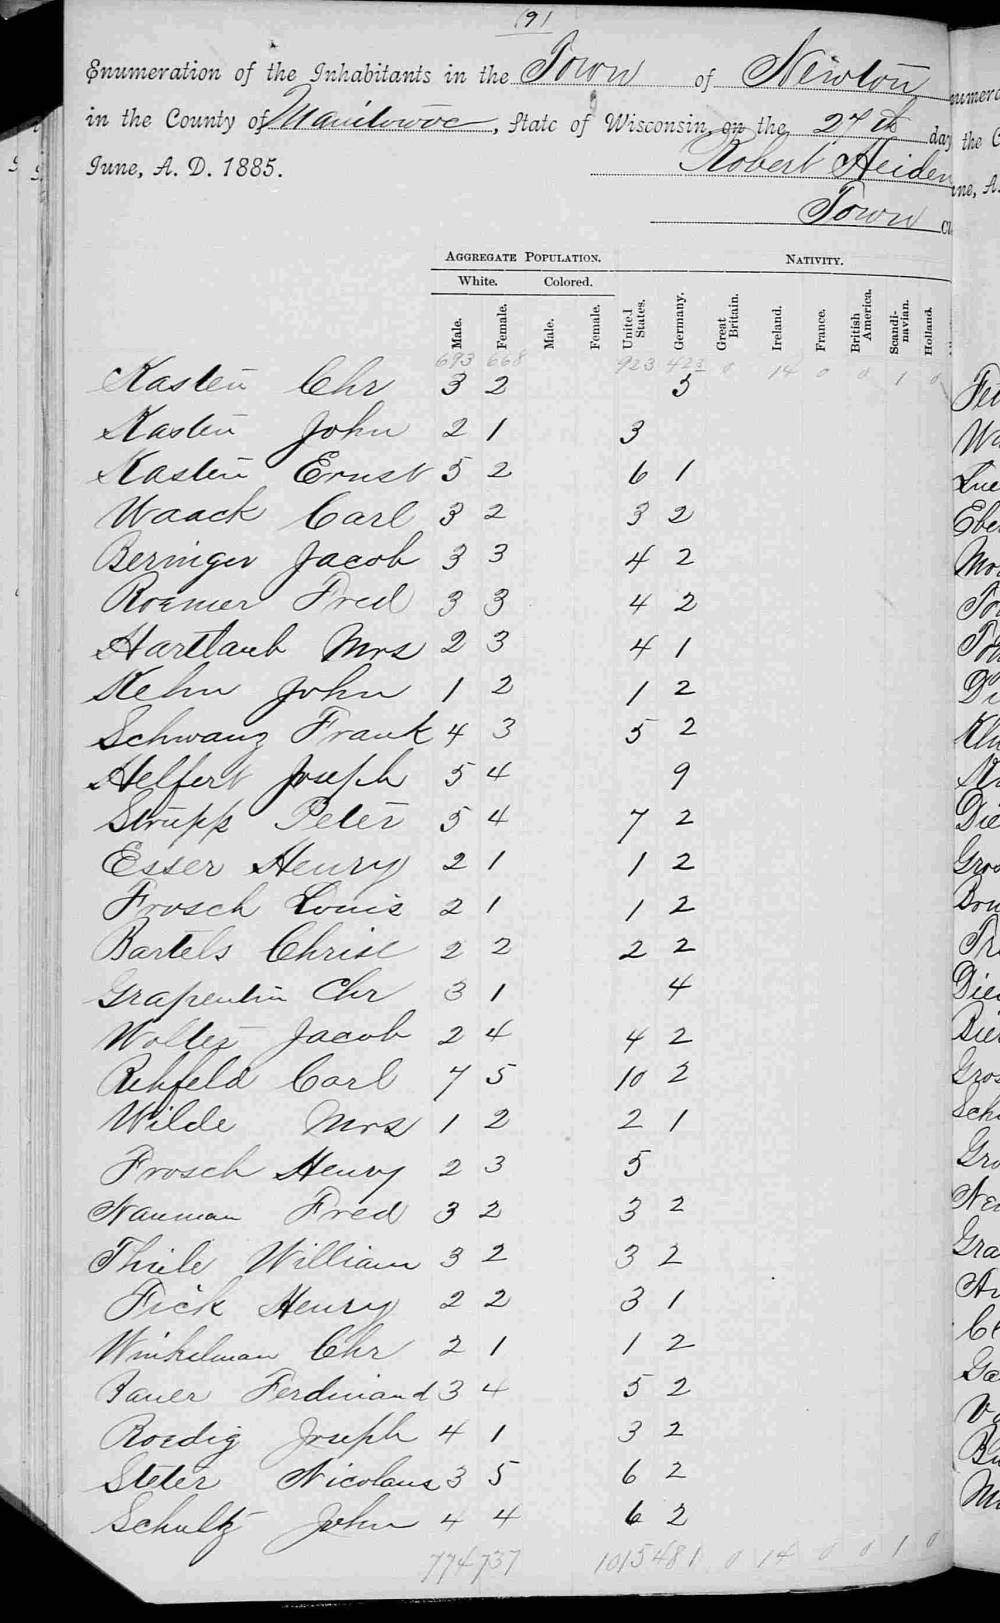 (9)
Enumeration of the Inhabitants in the Town of Newton
in the County of Manitowoc, State of Wisconsin, on the 27th day
June, A. D. 1885. Robert Heiden
Town Cl
AGGREGATE POPULATION. NATIVITY.
White. Colored.
Male. Female. Male. Female. United States. Germany. Great Britain. Ireland. France. British America. Scandinavian. Holland.
693 668 923 423 0 14 0 0 1 0
Kasten Chr 3 2 5
Kasten John 2 1 3
Kasten Ernst 5 2 6 1
Waack Carl 3 2 3 2
Beringer Jacob 3 3 4 2
Roemer Fred 3 3 4 2
Hartlaub Mrs 2 3 4 1
Kehn John 1 2 1 2
Schwanz Frank 4 3 5 2
Helfert Joseph 5 4 9
Strupp Peter 5 4 7 2
Esser Henry 2 1 1 2
Frosch Louis 2 1 1 2
Bartels Christ 2 2 2 2
Grapentin Chr 3 1 4
Wolter Jacob 2 4 4 2
Rehfeld Carl 7 5 10 2
Wilde Mrs 1 2 2 1
Frosch Henry 2 3 5
Nauman Fred 3 2 3 2
Thiele William 3 2 3 2
Fick Henry 2 2 3 1
Winkelman Chr 2 1 1 2
Bauer Ferdinand 3 4 5 2
Roedig Joseph 4 1 3 2
Steter Nicolaus 3 5 6 2
Schultz John 4 4 6 2
774 737 1015 481 0 14 0 0 1 0